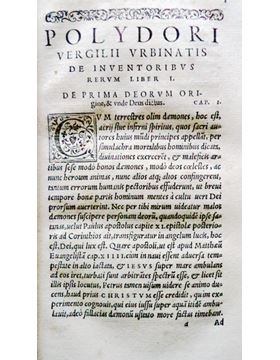 POLYDORI
VERGILII VRBINATIS
DE INVENTORIBVS
RERVM LIBER I.
DE PRIMA DEORVM ORI
gine, & vnde Deus dictus. CAP. I.
CVM terrestres olim demones, hoc est,
aerij siue inferni spiritus, quos sacri au
ctores huius mūdi principes appellāt, per
simulachra mortalibus hominibus dicata,
diuinationes exercerēt, & maleficis arti
bus sese modo bonos demones, modo deos cœlicos, ac
nunc heroum animas, nunc alias atq; alias confingerent,
tantum errorum humanis pectoribus effuderunt, ut breui
tempore bona pars hominum mentes à cultu ueri Dei
prorsum auerterint. Nec per tibi mirum uideatur malos
demones suscipere personam deorū, quandoquidē ipse sa
tanas, ueluti Paulus apostolus capite xi. epistolæ posterio
ris ad Corinthios ait, transfiguratur in angelum lucis, hoc
est, Dei, qui lux est. Quare apostoli, ut est apud Matthæū
Euangelistā cap. xiiij. cum in naui essent aduersa tem-
pestate in alto iactata, & IESVS super mare ambulans
eo sese conferret, sunt arbitrati spectrum esse, & licet sit
illis ipse locutus, Petrus tamen uisum uidere se animo du
cens, haud prius CHRISTVM esse credidit, quim ex peri-
mento cognouit, qui eius iussu super aquā uidit
bat, adeò fallacias demonū iniusto more factas timebant.
a Ad